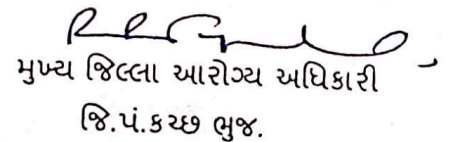 મુખ્ય જિલ્લા આરોગ્ય અધિકારી
જિ.પં.કચ્છ ભુજ.